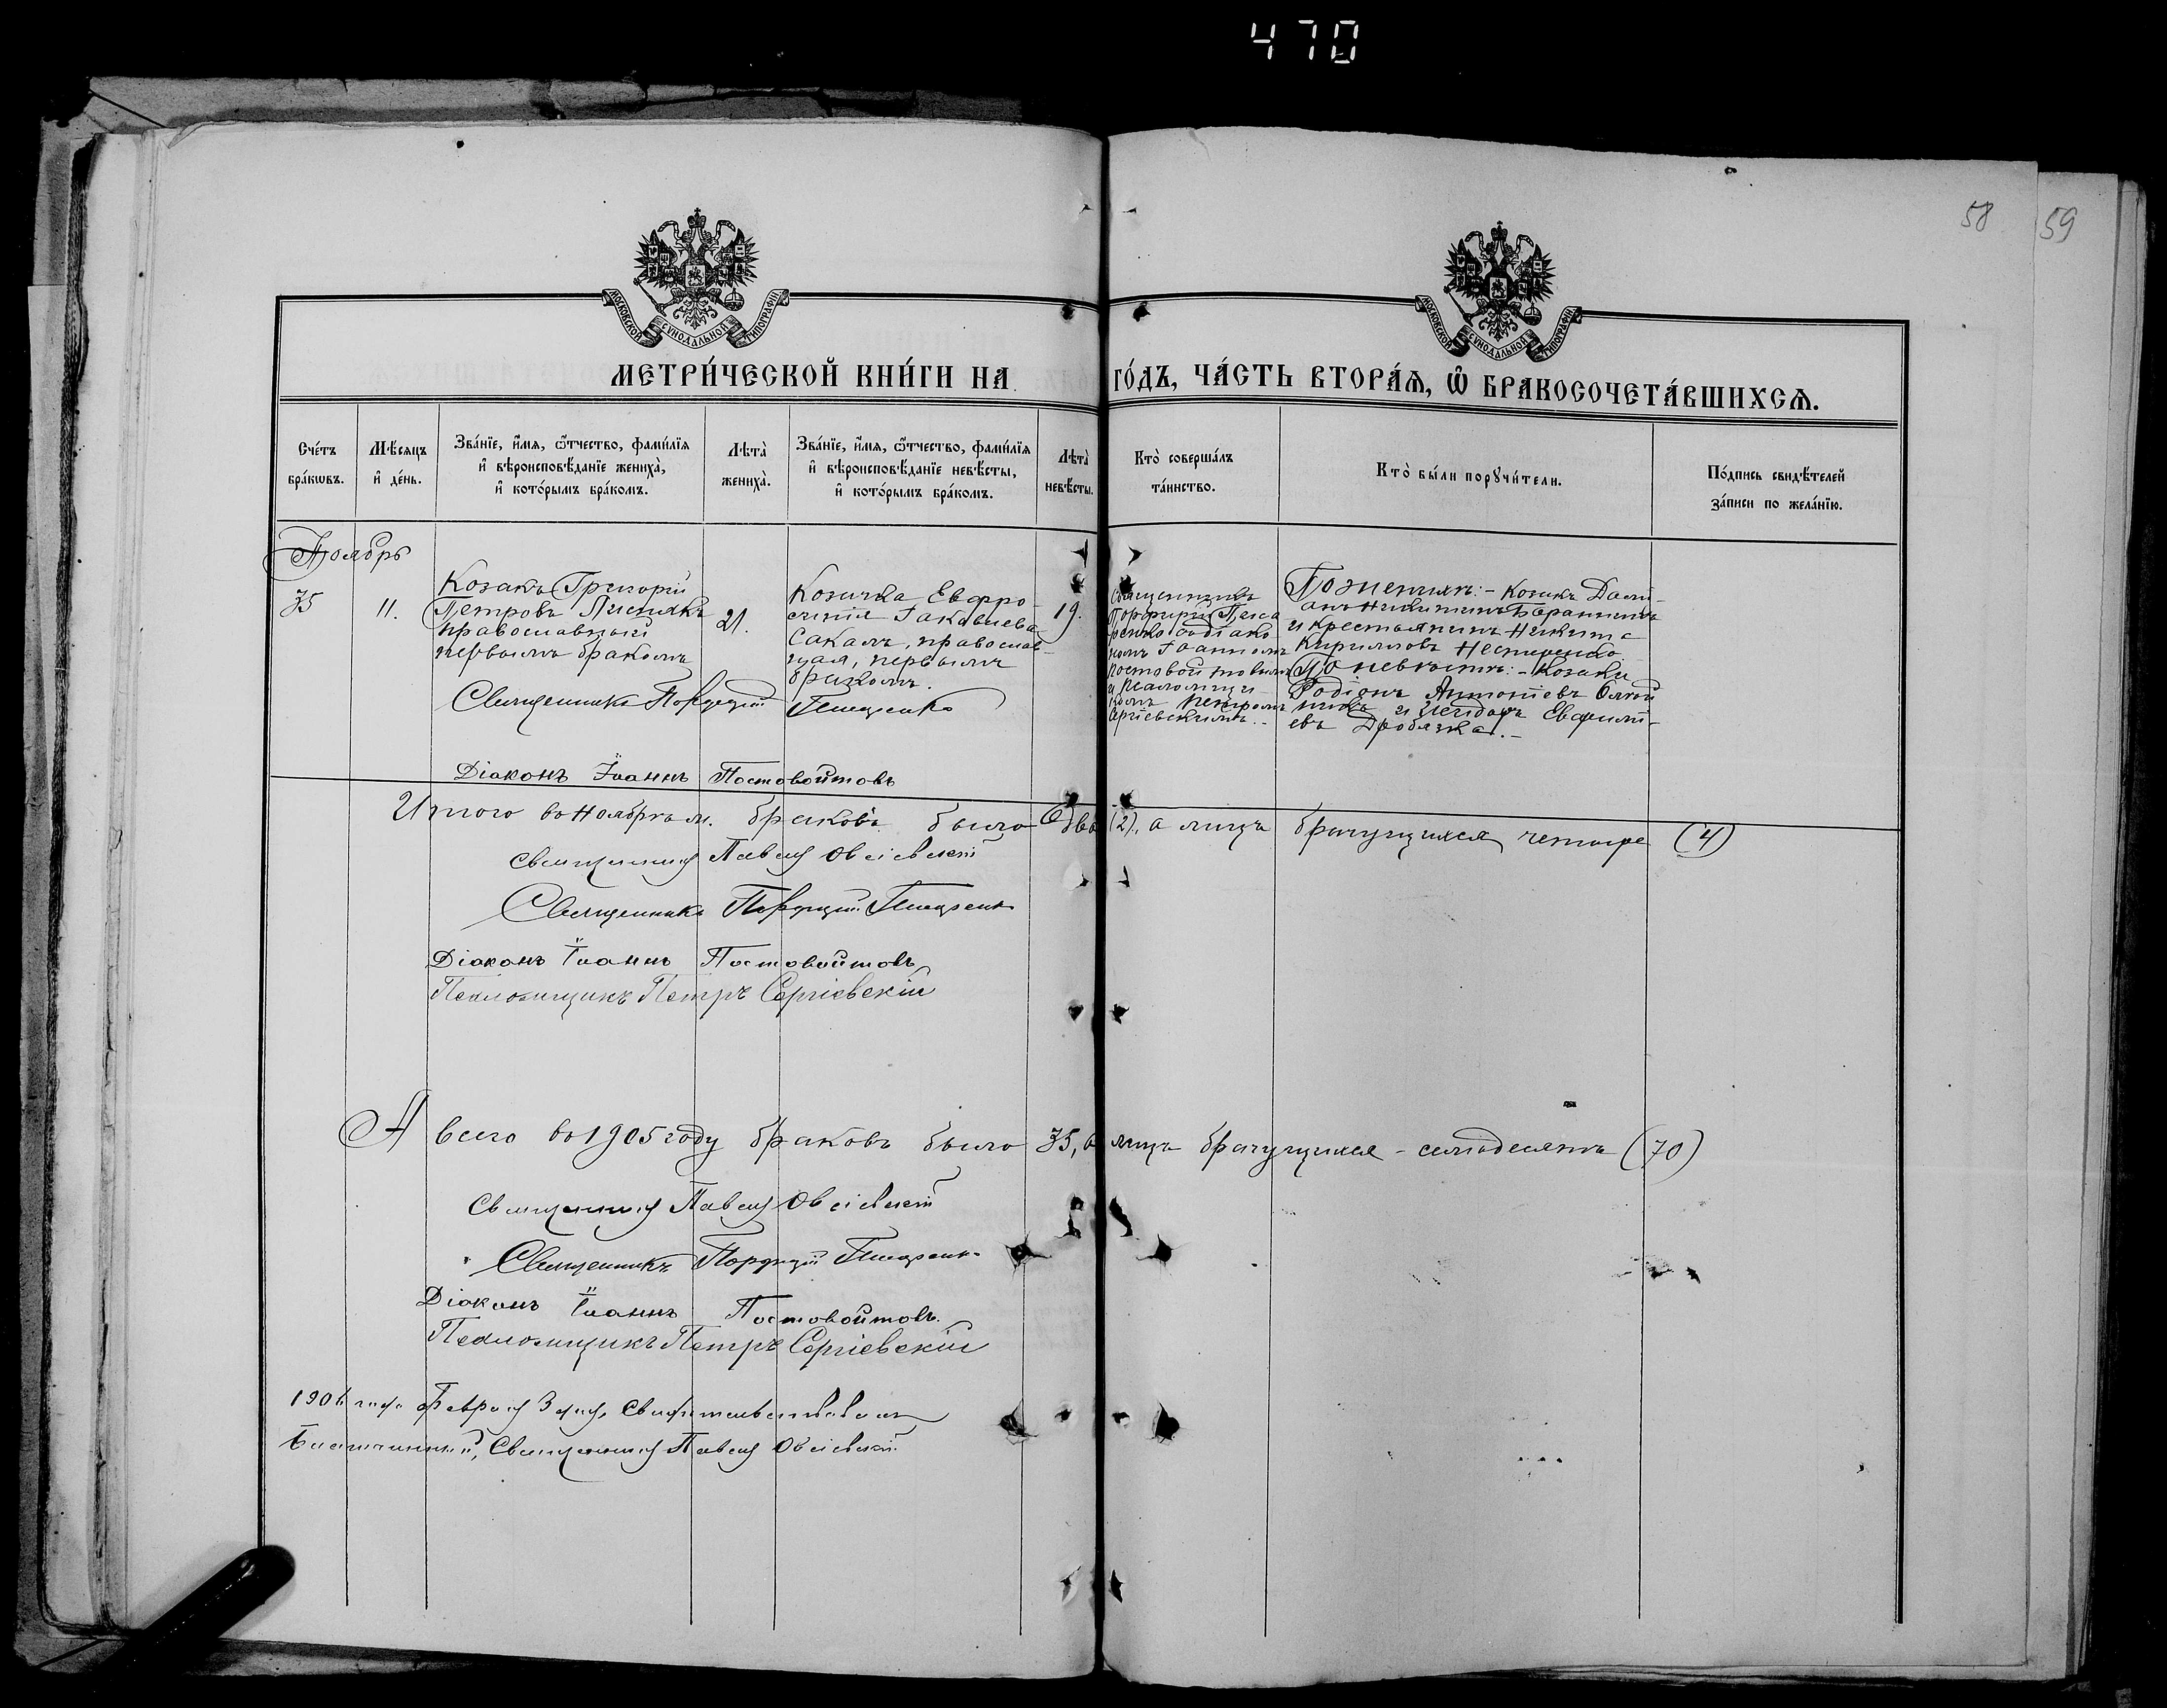 470
58 59
МОСКОВСКОЙ СѴНОДАЛЬНОЙ ТИПОГРАФІИ
МОСКОВСКОЙ СѴНОДАЛЬНОЙ ТИПОГРАФІИ
МЕТРИ́ЧЕСКОЙ КНИ́ГИ НА ГО́ДЪ, ЧА́СТЬ ВТОРА́Ѧ, Ѡ҆ БРАКОСОЧЕТА́ВШИХСѦ.
Сче́тъ бра́кѡвъ.
Мѣ́сѧцъ и҆ де́нь.
Зва́нїе, и҆́мѧ, ѻ҆́тчество, фами́лїѧ и҆ вѣроисповѣ́данїе жениха̀, и҆ кото́рымъ бра́комъ.
Лѣта̀ жениха̀.
Зва́нїе, и҆́мѧ, ѻ҆́тчество, фами́лїѧ и҆ вѣроисповѣ́данїе невѣ́сты, и҆ кото́рымъ бра́комъ.
Лѣта̀ невѣ́сты.
Кто̀ соверша́лъ та́инство.
Кто̀ бы́ли порꙋчи́тели.
По́дпись свидѣ́телей за́писи по жела́нїю.
Ноябрь
35
11.
Козакъ Григорій
Петровъ Лисиакъ
православный
первымъ бракомъ
21.
Козачка Евфро-
синія Іаковлева
Сакалъ, православ-
ная, первымъ
бракомъ.
19.
Священникъ
Порфирій Писа
ренко съ діако
номъ Іоанномъ
Постовойтовымъ
и псаломщи
комъ Петромъ
Сергіевскимъ.-
По женихѣ:- козакъ Даміанъ Никитинъ
и крестьянинъ Никита
Кирилловъ Нестеренко
По невѣстѣ:- Козаки
Родіонъ Антоніевъ Олій
никъ и Исидоръ Евфимі-
евъ Дробязка.-
Священникъ Порфирій Писаренко
Діаконъ Іоаннъ Постовойтовъ
Итого въ Ноябрѣ м. браковъ было два (2), а лицъ брачущихся четыре (4)
Священникъ Павелъ
Священникъ Порфирій Писаренко
Діаконъ Іоаннъ Постовойтовъ
Псаломщикъ Петръ Сергіевскій
А всего въ 1905 году браковъ было 35, а лицъ брачущихся - семьдесятъ (70)
Священникъ Павелъ
Священникъ Порфирій Писаренко
Діаконъ Іоаннъ Постовойтовъ.
Псаломщикъ Петръ Сергіевскій
1906 года Февраля 3 дня, Свидѣтельствовалъ
Благочинный, Священникъ Павелъ